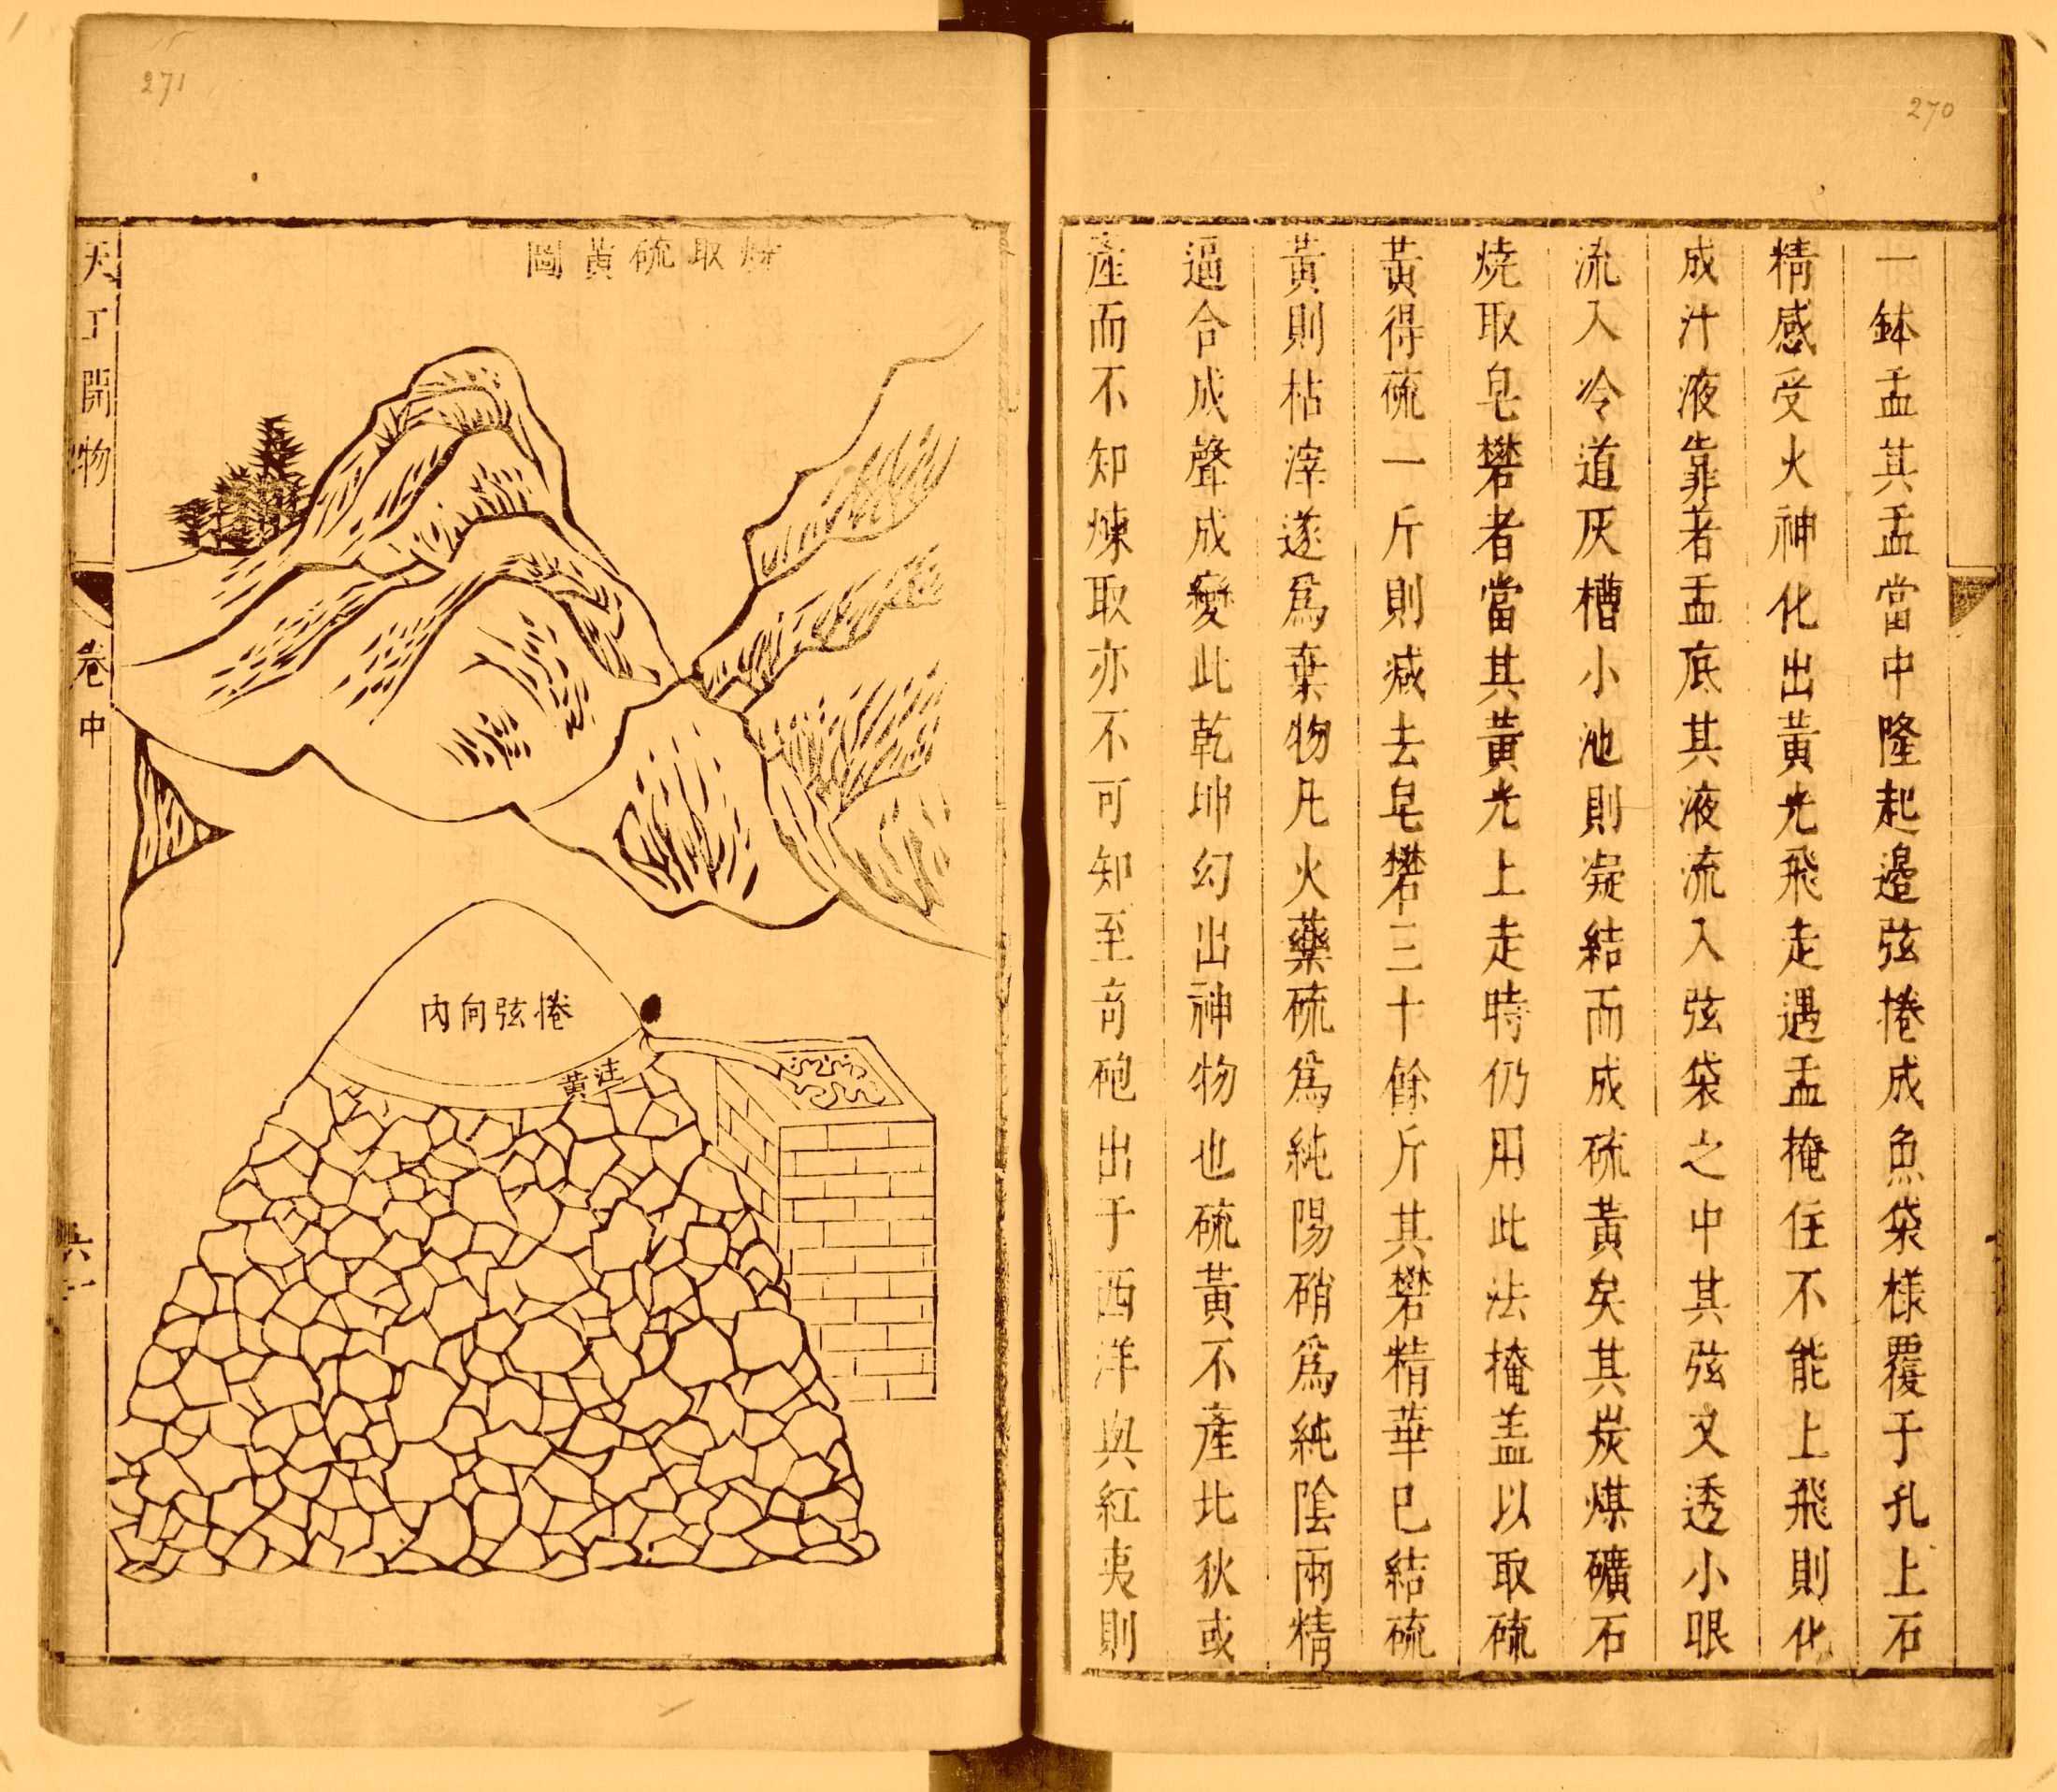 270
一鉢盂其盂當中隆起邉弦捲成魚袋樣覆于孔上石
精感受火神化出黃光飛走遇盂掩住不能上飛則化
成汁液靠著盂底其液流入弦袋之中其弦又透小眼
流入冷道灰槽小池則凝結而成硫黃矣其炭煤礦石
燒取皂礬者當其黃光上走時仍用此法掩盖以取硫
黃得硫一斤則減去皂礬三十餘斤其礬精華已結硫
黃則枯滓遂爲棄物凡火藥硫爲純陽硝爲純陰兩精
逼合成聲成變此乾坤幻出神物也硫黃不產北狄或
產而不知煉取亦不可知至奇砲出于西洋與紅夷則
271
燒取硫黃圖
捲弦向內
注黃
天工開物
卷中
六一